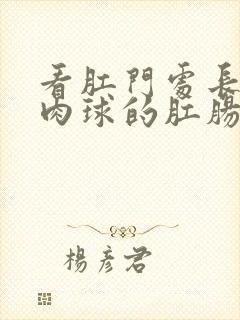 看肛門處長
肉球的肛腸
楊彥君